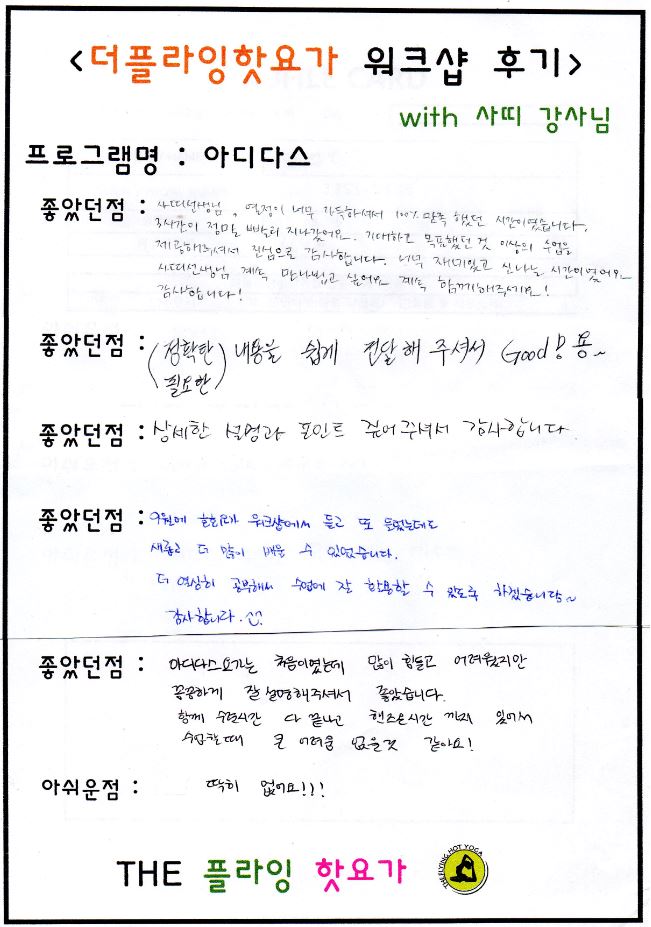 <더플라잉핫요가 워크샵 후기>
with 사띠 강사님
프로그램명 : 아디다스
좋았던점 : 사띠선생님, 열정이 너무 가득하셔서 100% 만족했던 시간이였습니다.
3시간이 정말 빨리 지나갔어요. 기대하고 목표했던 것 이상의 수업을
제공해주셔서 진심으로 감사합니다. 너무 재미있고 신나는 시간이였어요
사띠선생님 계속 만나뵙고 싶어요 계속 함께해주세요!
감사합니다!
좋았던점 : (정확한 내용을 쉽게 전달해 주셔서 Good!용~
필요한)
좋았던점 : 상세한 설명과 포인트 짚어주셔서 감사합니다
좋았던점 : 9월에 워크샵에서 듣고 또 들었는데도
새롭고 더 많이 배울 수 있었습니다.
더 열심히 공부해서 수업에 잘 활용할 수 있도록 하겠습니다~
감사합니다.
좋았던점 : 아디다스요가는 처음이였는데 많이 힘들고 어려웠지만
꼼꼼하게 잘 설명해주셔서 좋았습니다.
함께 수련시간 다 끝나고 핸즈온시간 까지 있어서
수업할때 큰 어려움 없을것 같아요!
아쉬운점 : 딱히 없어요!!!
THE 플라잉 핫요가
THE FLYING HOT YOGA